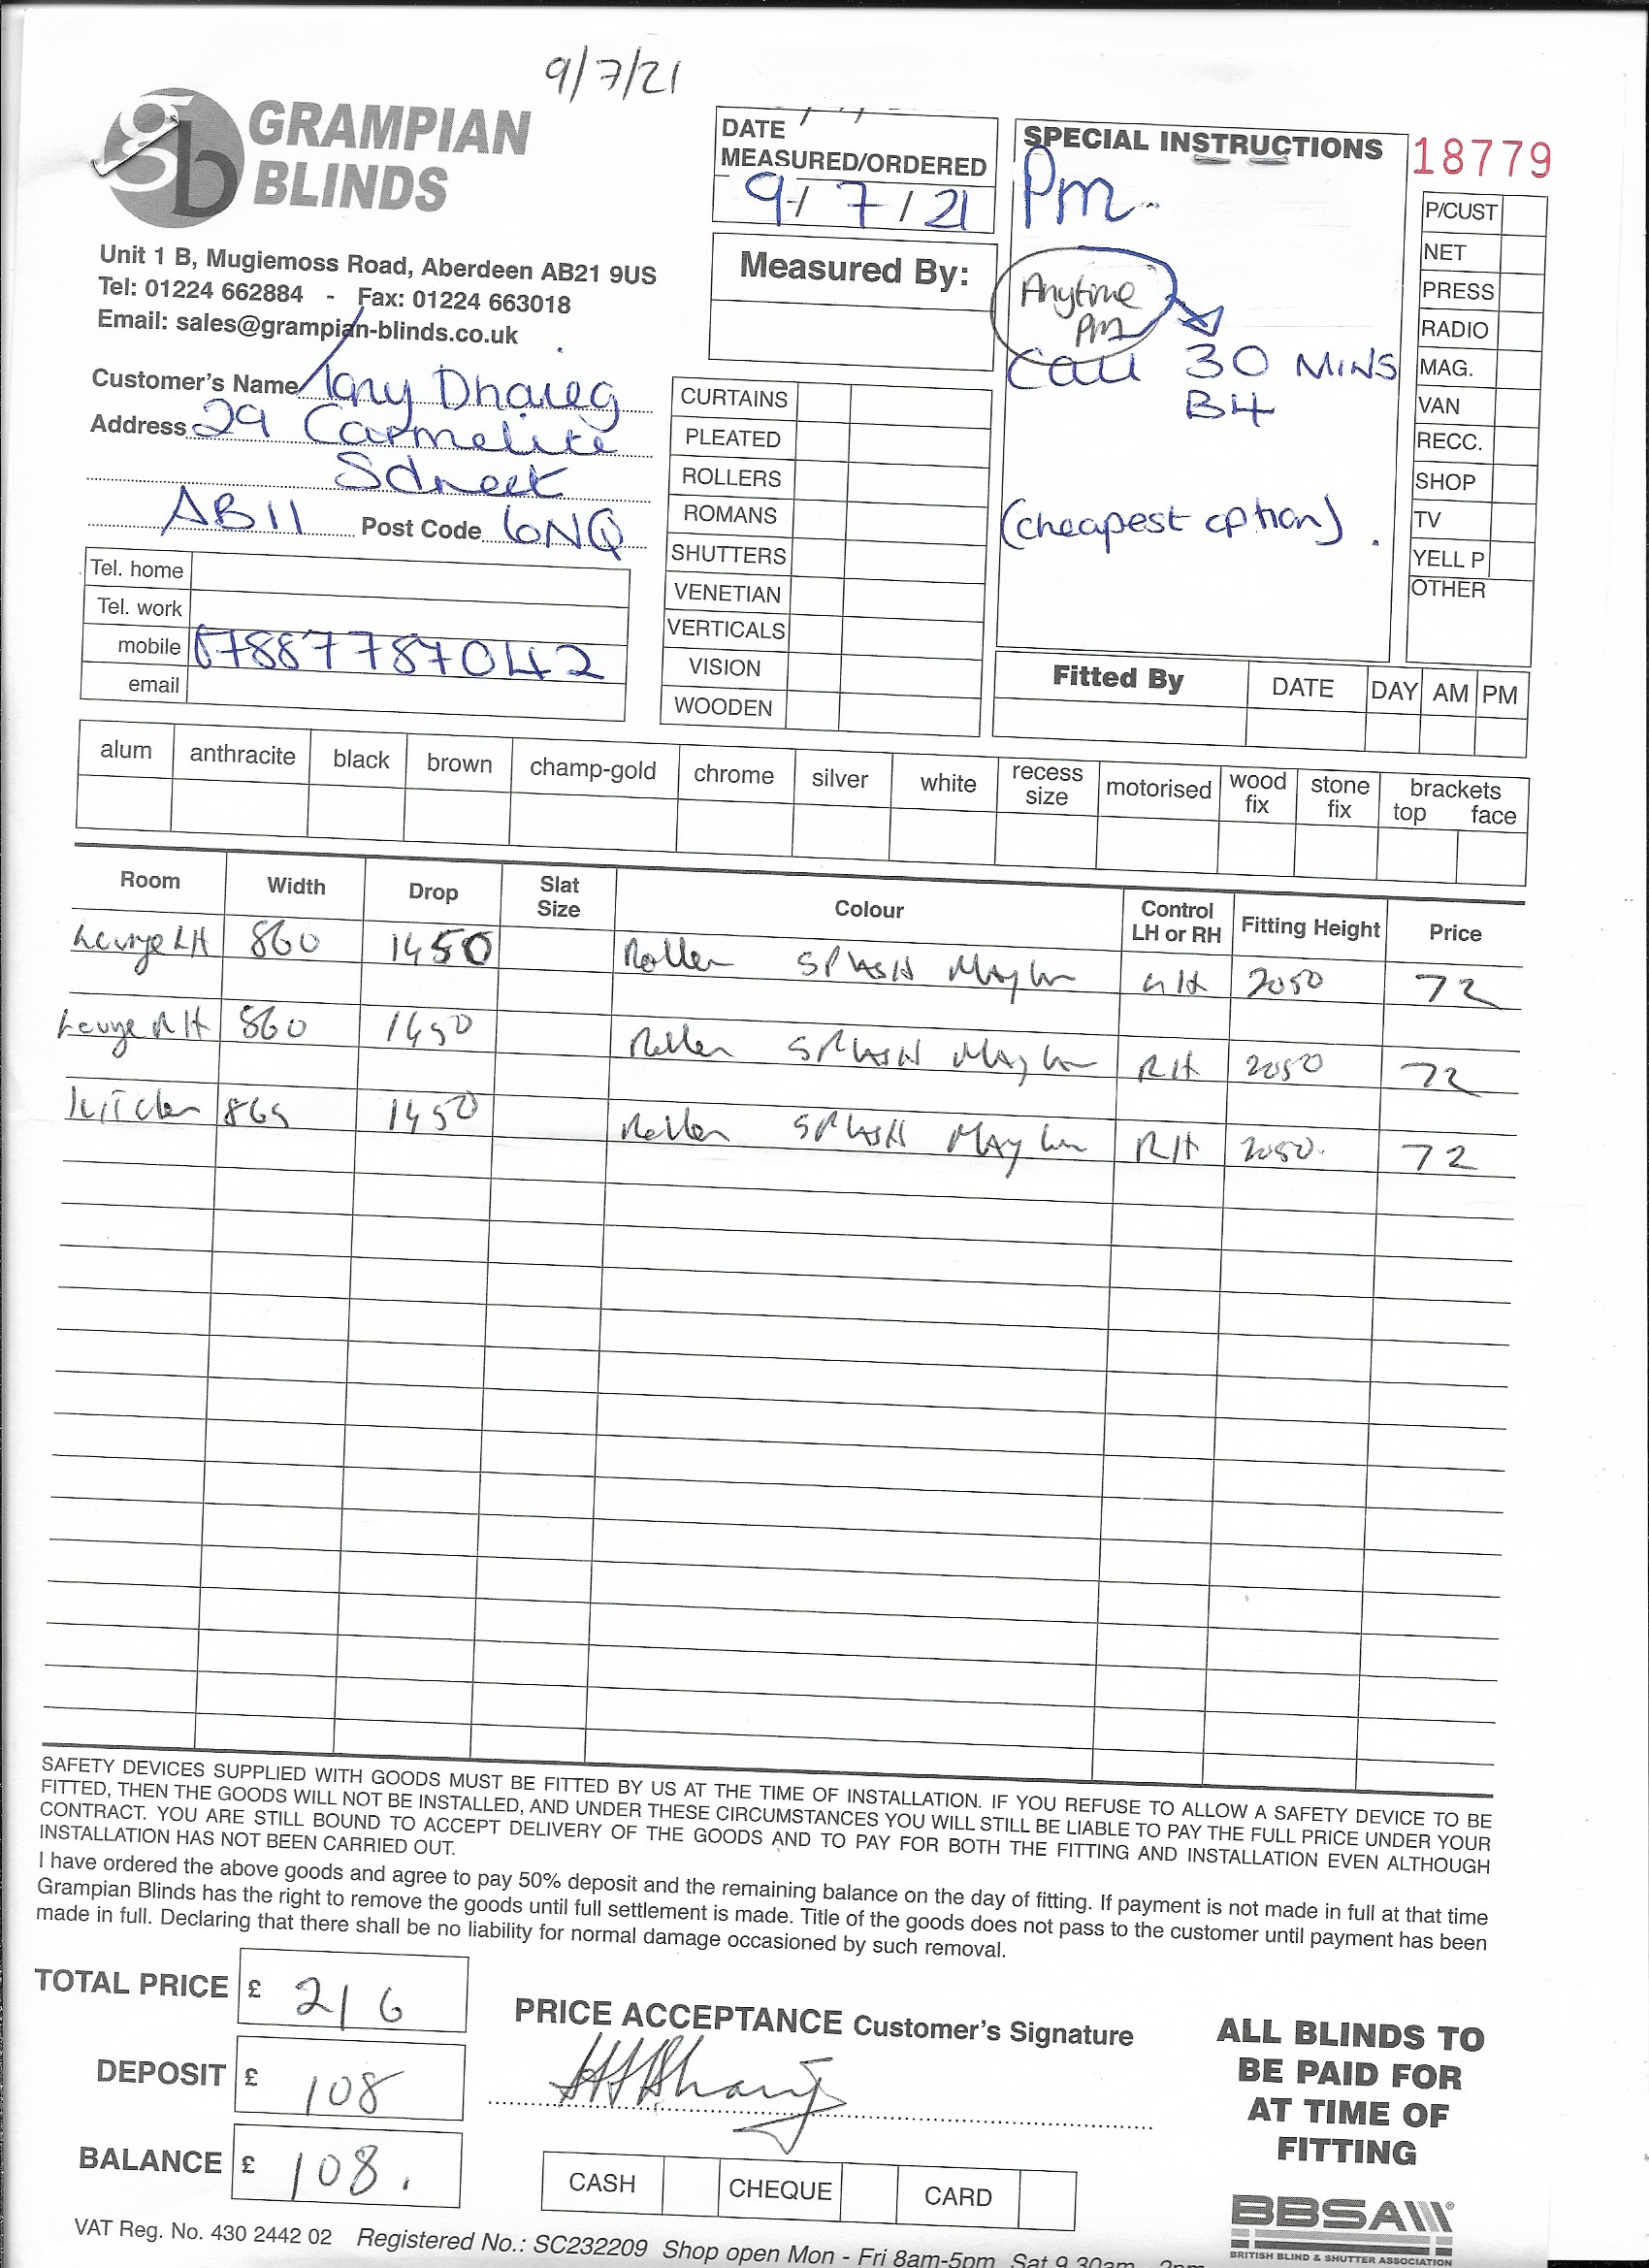 9/7/21
gb
GRAMPIAN
BLINDS
Unit 1 B, Mugiemoss Road, Aberdeen AB21 9US
Tel: 01224 662884 - Fax: 01224 663018
Email: sales@grampian-blinds.co.uk
DATE
MEASURED/ORDERED
9/7/21
Measured By:
SPECIAL INSTRUCTIONS
Pm
Anytime
PM
Call 30 MINS
B4
(cheapest option).
18779
P/CUST
NET
PRESS
RADIO
MAG.
VAN
RECC.
SHOP
TV
YELL P
OTHER
Customer's Name Tony
Address 29 Carmelite
Street
AB11 Post Code 6NQ
Tel. home
Tel. work
mobile 07887787042
email
CURTAINS
PLEATED
ROLLERS
ROMANS
SHUTTERS
VENETIAN
VERTICALS
VISION
WOODEN
Fitted By DATE DAY AM PM
alum anthracite black brown champ-gold chrome silver white recess size motorised wood fix stone fix brackets top face
Room Width Drop Slat Size Colour Control LH or RH Fitting Height Price
Lounge LH 860 1450 Roller SPLASH LH 2050 72
Lounge RH 860 1450 Roller SPLASH RH 2050 72
Kitchen 865 1450 Roller SPLASH RH 2050 72
SAFETY DEVICES SUPPLIED WITH GOODS MUST BE FITTED BY US AT THE TIME OF INSTALLATION. IF YOU REFUSE TO ALLOW A SAFETY DEVICE TO BE
FITTED, THEN THE GOODS WILL NOT BE INSTALLED, AND UNDER THESE CIRCUMSTANCES YOU WILL STILL BE LIABLE TO PAY THE FULL PRICE UNDER YOUR
CONTRACT. YOU ARE STILL BOUND TO ACCEPT DELIVERY OF THE GOODS AND TO PAY FOR BOTH THE FITTING AND INSTALLATION EVEN ALTHOUGH
INSTALLATION HAS NOT BEEN CARRIED OUT.
I have ordered the above goods and agree to pay 50% deposit and the remaining balance on the day of fitting. If payment is not made in full at that time
Grampian Blinds has the right to remove the goods until full settlement is made. Title of the goods does not pass to the customer until payment has been
made in full. Declaring that there shall be no liability for normal damage occasioned by such removal.
TOTAL PRICE £ 216
DEPOSIT £ 108
BALANCE £ 108.
PRICE ACCEPTANCE Customer's Signature
CASH CHEQUE CARD
ALL BLINDS TO
BE PAID FOR
AT TIME OF
FITTING
BBSA
BRITISH BLIND & SHUTTER ASSOCIATION
VAT Reg. No. 430 2442 02 Registered No.: SC232209 Shop open Mon - Fri 8am-5pm Sat 9.30am